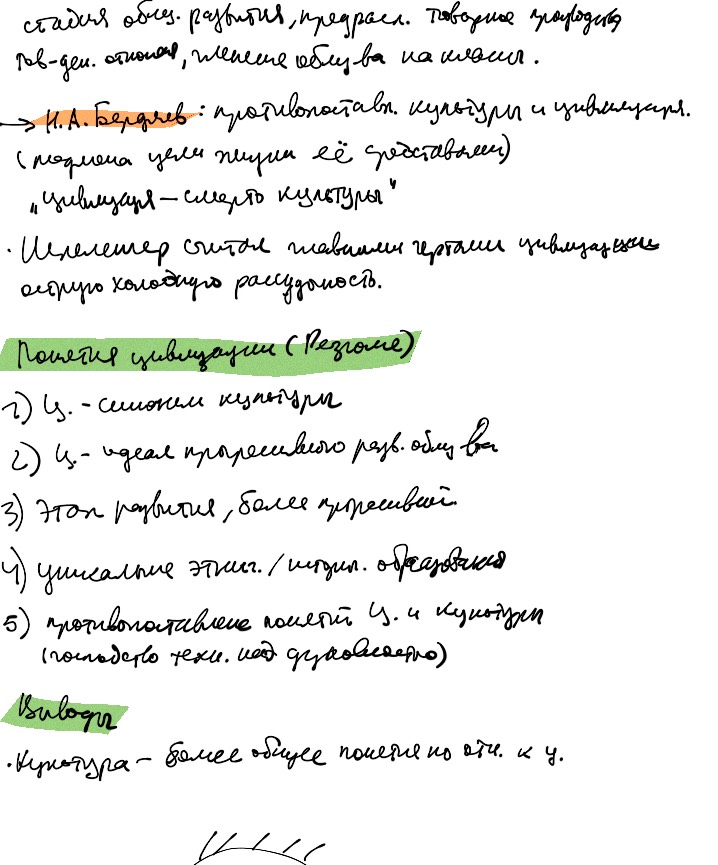 стадия общ. развития, предпол. товарное произ-водство
тов-ден. отношен., членение общ-ва на классы.
→ Н.А. Бердяев: противопоставл. культуры и цивилизации.
(подмена цели жизни её средствами)
„цивилизация – смерть культуры"
· Шпенглер считал главными чертами цивилизации
острую холодную рассудочность.
Понятия цивилизации (Резюме)
1) Ц. - синоним культуры
2) Ц - идеал прогрессивного разв. общ-ва
3) Этап развития, более прогрессивный.
4) уникальные этнич./истор. образования
5) противопоставление понятий Ц. и культуры
(господство техн. над духовностью)
Выводы
· Культура – более общее понятие по отн. к ц.